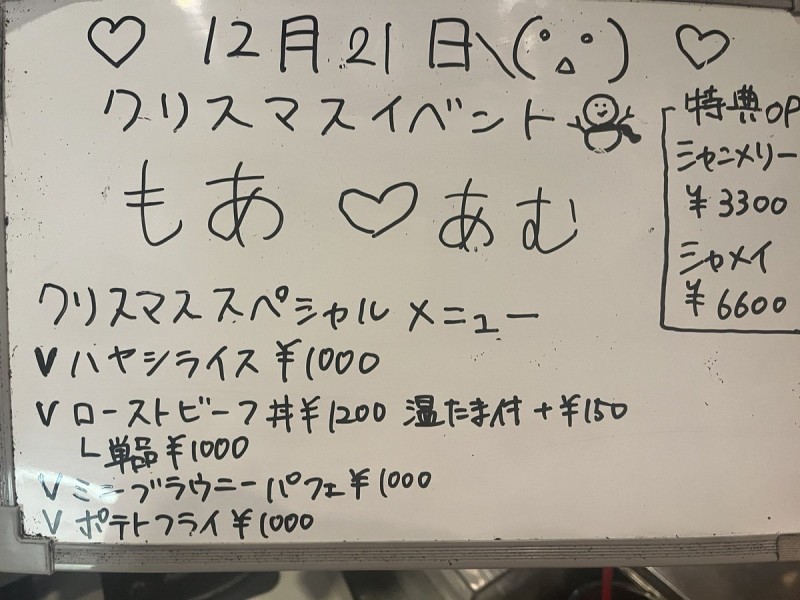 ♡ 12月21日\(°▵°) ♡
クリスマスイベント
もあ♡あむ
特典OP
シャンメリー
¥3300
シャメイ
¥6600
クリスマススペシャルメニュー
V ハヤシライス ¥1000
V ローストビーフ丼¥1200 温たま付+¥150
└単品¥1000
V ミニーブラウニーパフェ¥1000
V ポテトフライ¥1000